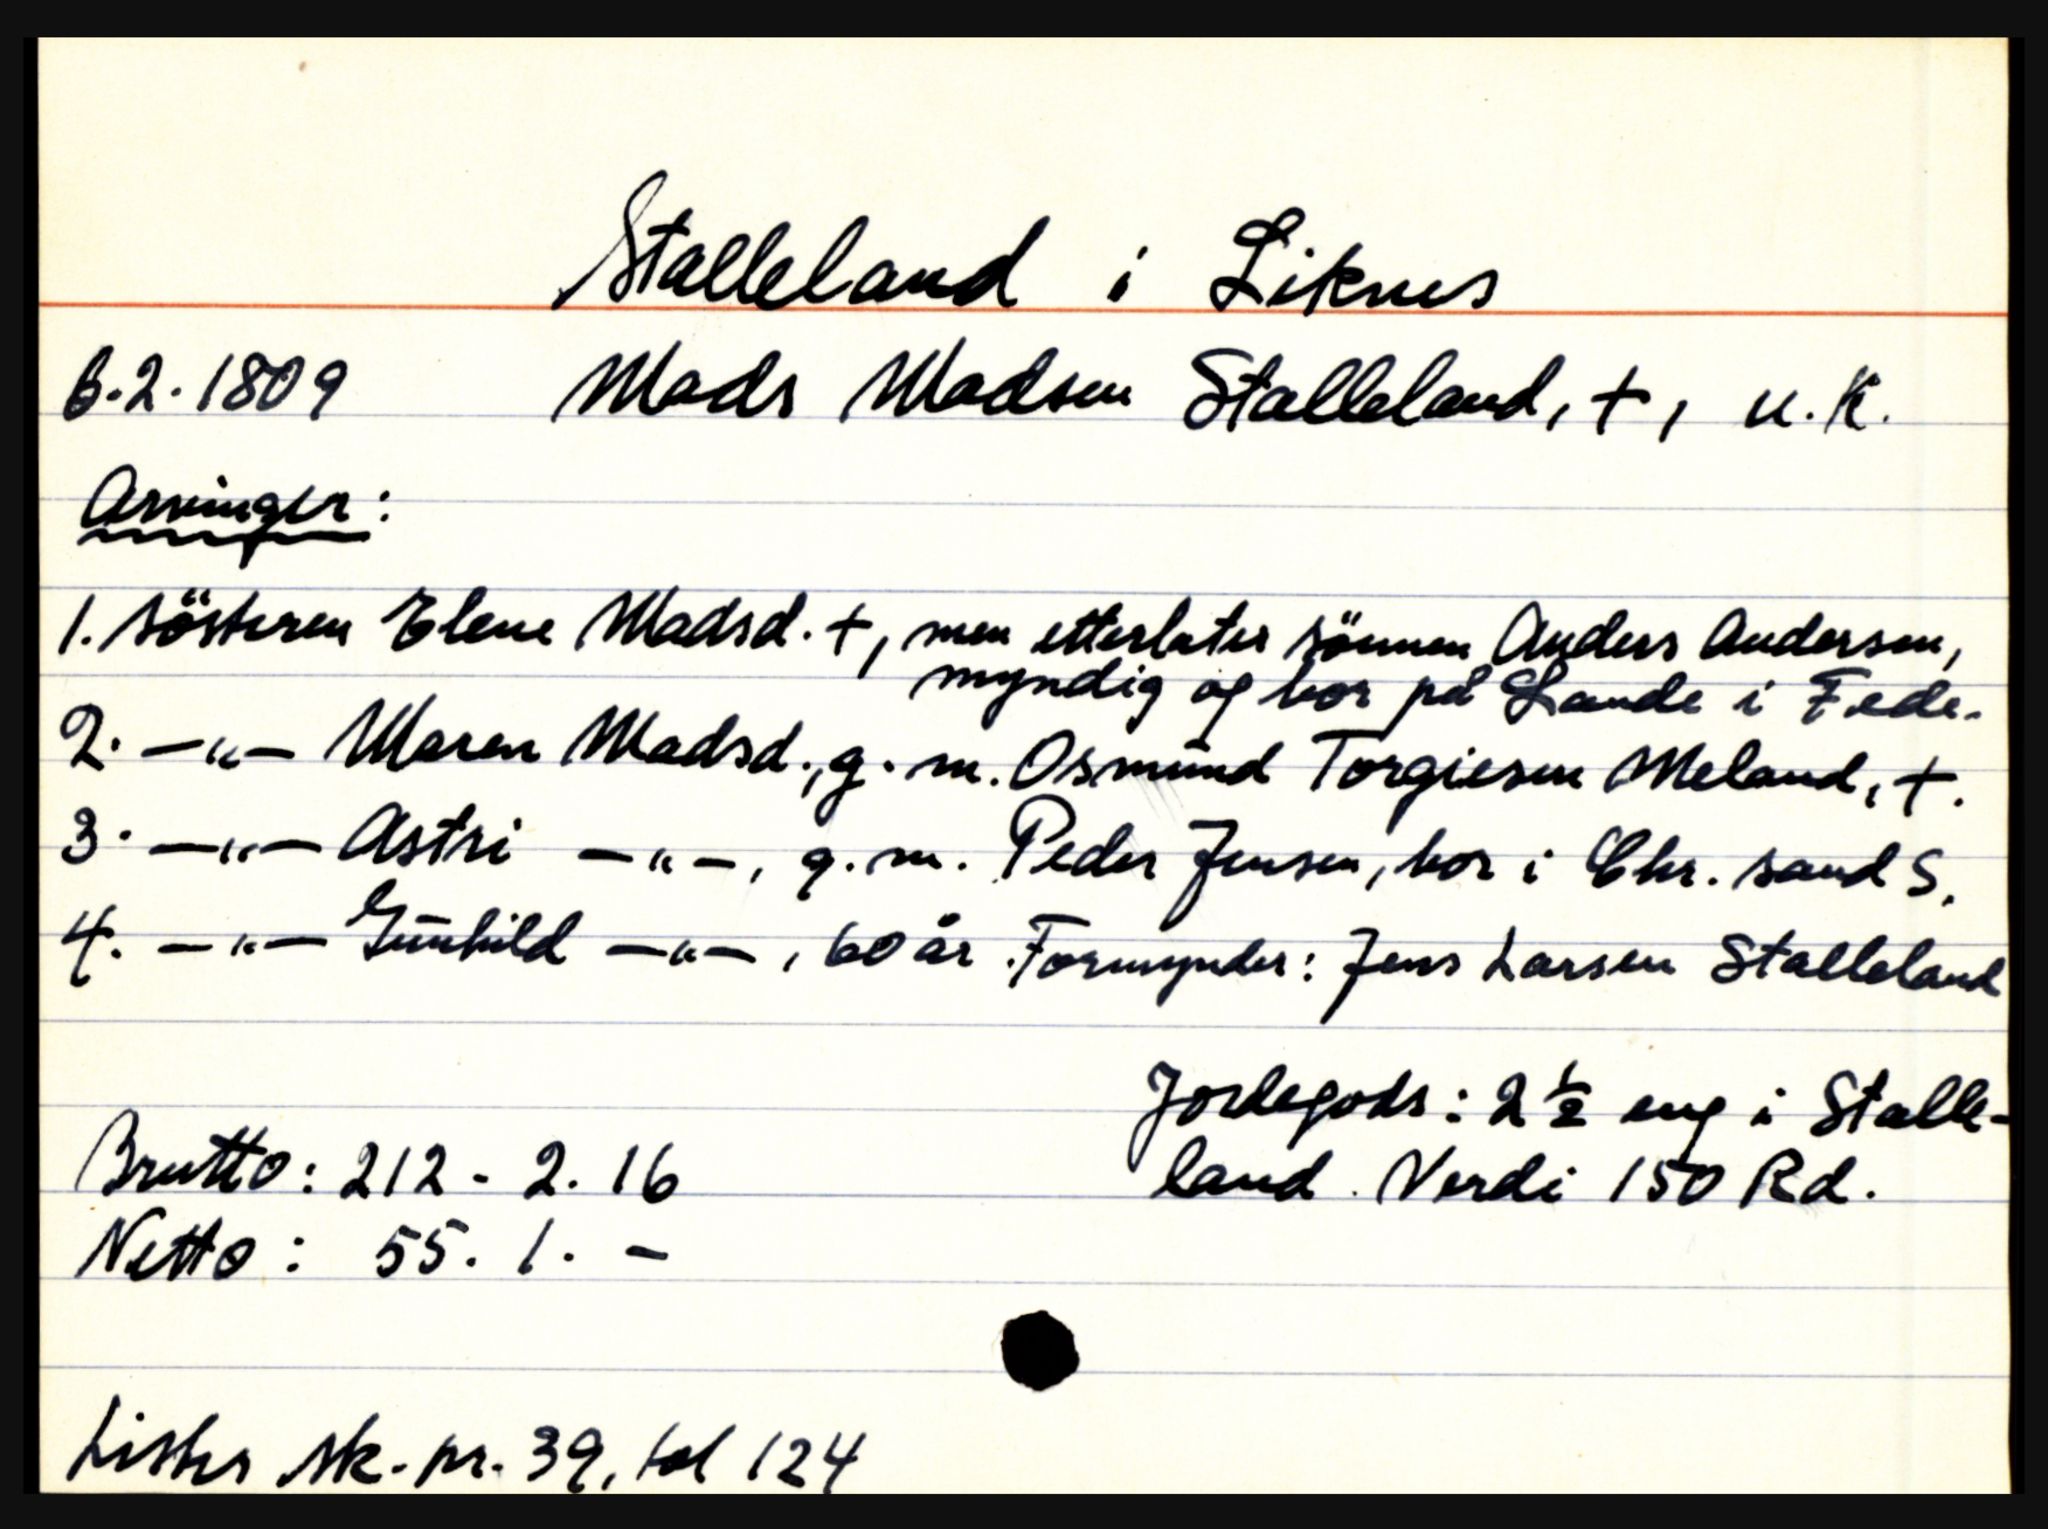 Stalleland i Liknes
6.2.1809 Mads Madsen Stalleland, +, u.k.
Arvinger:
1. sösteren Elene Madsd. +, men etterlater sönnen Anders Andersen,
myndig og bor på Lande i Fede.
2. —"— Maren Madsd., g. m. Osmund Torgiesen Meland, +.
3. —"— Astri —"—, g. m. Peder Jensen, bor i Chr. sand S.
4. —"— Gunhild —"—, 60 år. Formynder: Jens Larsen Stalleland
Jordegods: 2 ½ eng i Stalle-
land. Verdi 150 Rd.
Brutto: 212 - 2. 16
Netto: 55. 1. -
Lister sk. pr. 39, fol 124